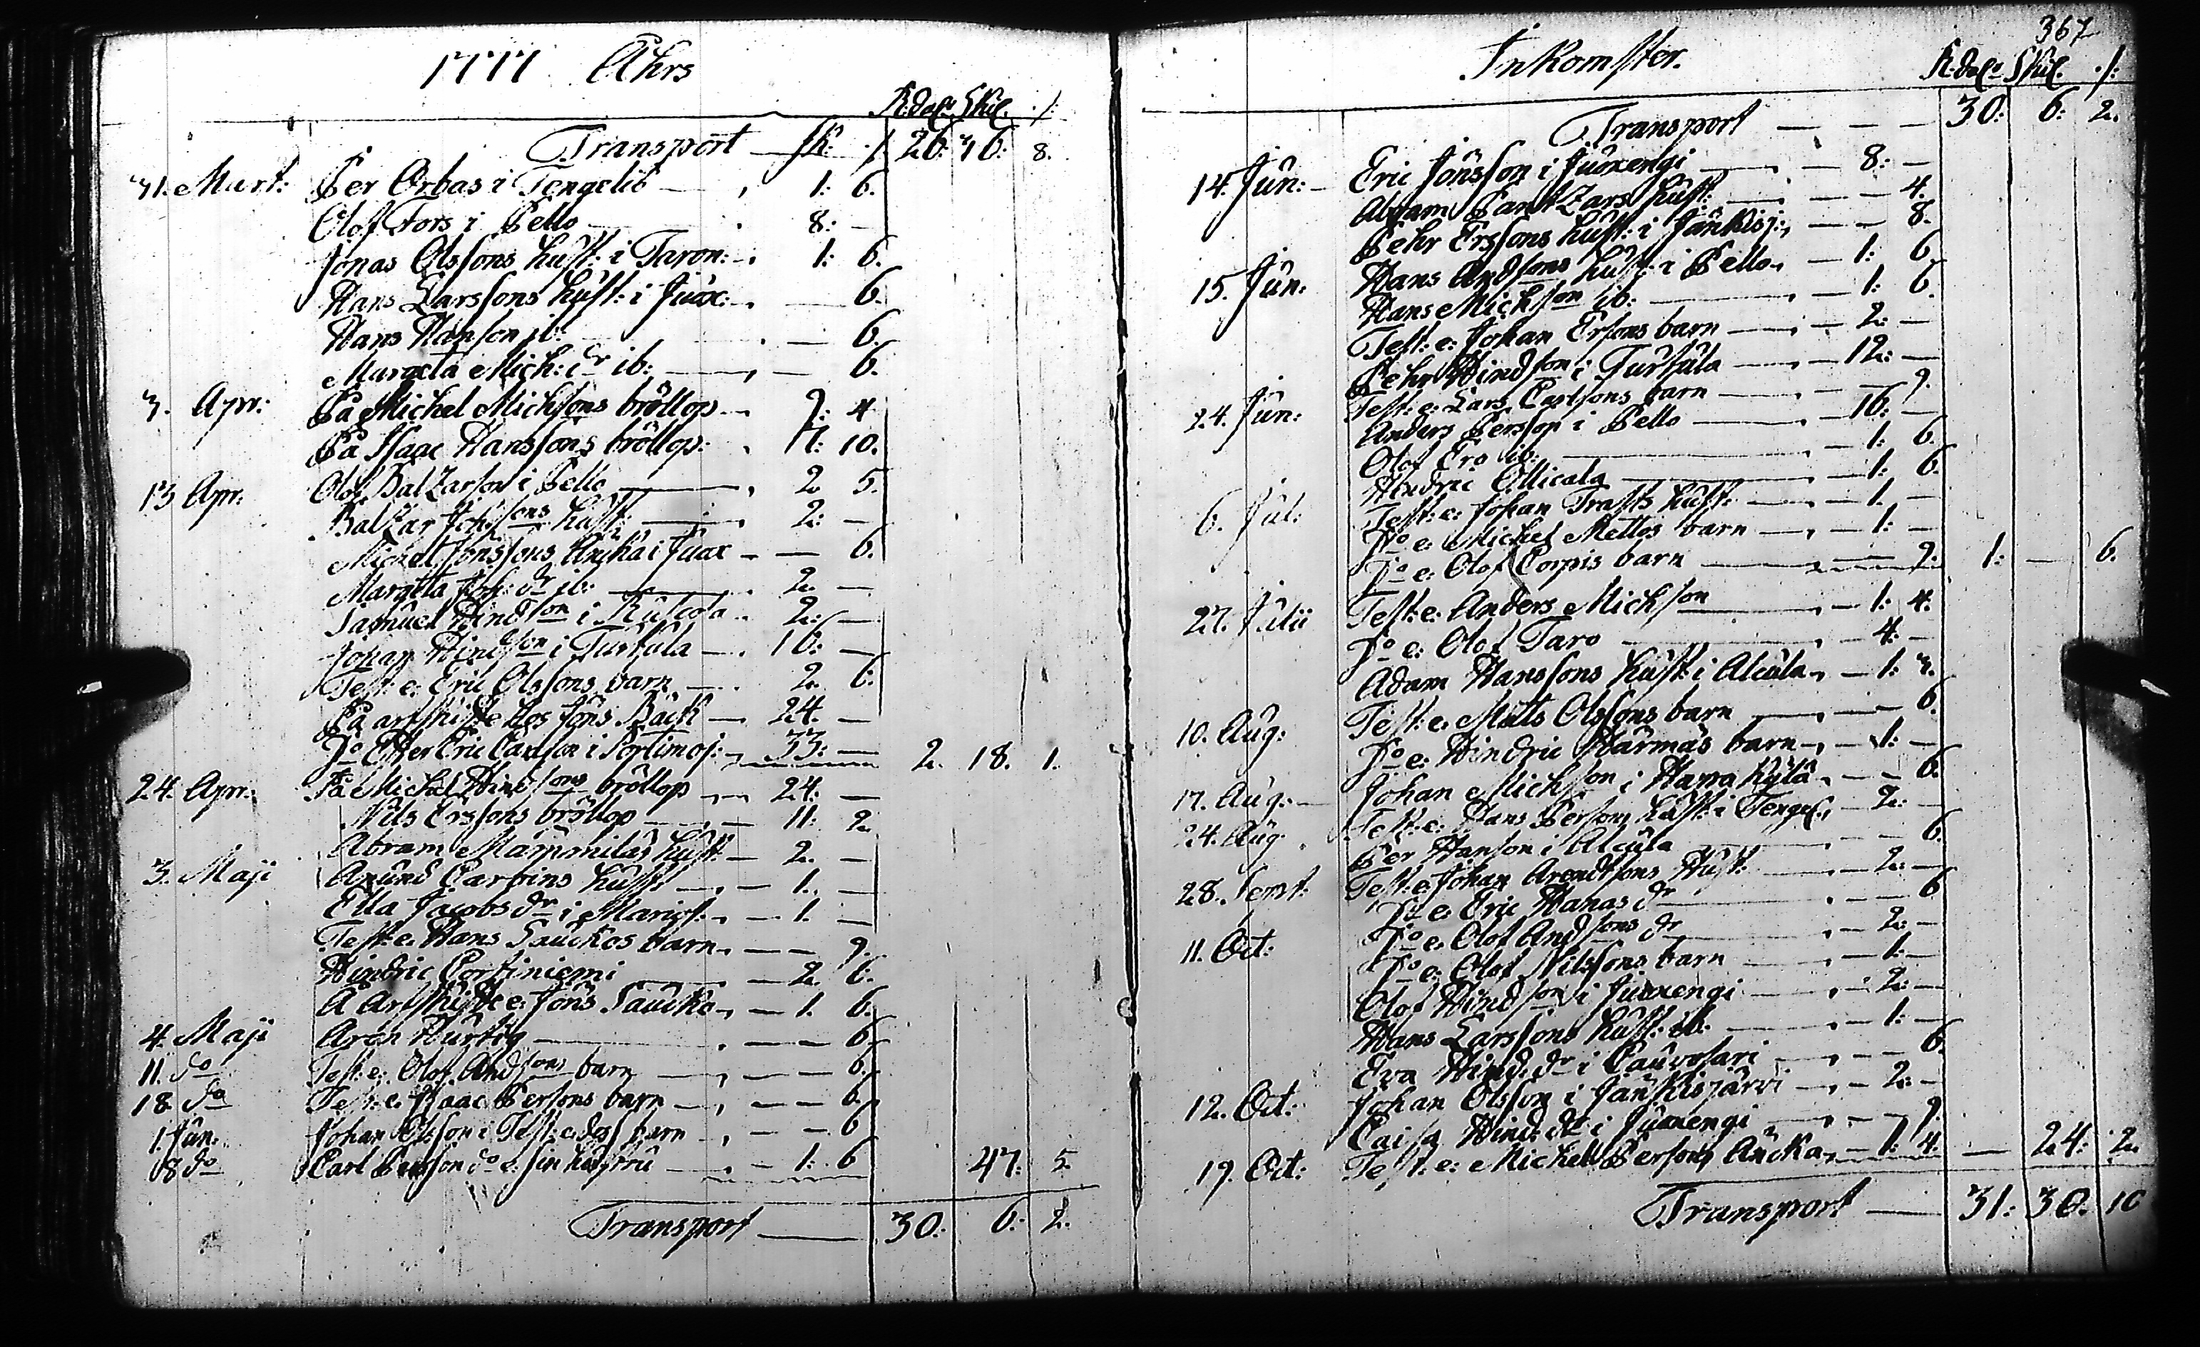 1777 Åhrs
R.dal. Skil. /:
Transport sk: /. 26: 36: 8.
31. Mart: Per Orbas i Tengelib 1: 6.
Olof Fors i Pello 8: —
Jonas Olssons hust: i Taron: 1: 6.
Hans Larssons hust: i Juox: — 6.
Hans Hanson ib: — 6.
Margeta Mich: dr ib: — 6.
3. Apr: På Michel Michsons bröllop 9: 4
På Isaac Hanssons bröllop: 7: 10.
13 Apr: Olof Baltzarson i Pello 2 5.
Baltzar Johssons hust: 2: —
Michel Jonssons Änka i Juox — 6.
Margeta Joh: dr ib: 2. —
Samuel Hindson i 2: —
Johan Hindson i Turtula 16: —
Test: e: Eric Olssons barn 2. 6.
På arfskifte hos Jöns Bäck 24. —
Do Efter Eric Carlson i Portimoj: 33: — 2. 18. 1.
24. Apr: På Michel Hindsons bröllop 24: —
Nils Erssons bröllop 11: 2
Abram Mämmiläs hust: 2. —
3. Maji Anund Carpins hust: 1. —
Ella Jacobs dr i Mariosj: 1. —
Test: e: Hans Lauckos barn — 9.
Hindric Cortiniemi 2 6.
Å Arfskifte e: Jöns Laucko 1. 6.
4. Maji Aron Hurtig — 6.
11. do Test: e: Olof Andsons barn — 6.
18 do Test: e: Isaac Persons barn — 6.
1. Jun: Johan Olsson i Test: e: dess barn — 6
18 do Carl Persson do e: sin hustru 1: 6 47: 5.
Transport 30: 6: 2.
367
Inkomster.
R.dal. Skil. /:
Transport 30: 6: 2.
14. Jun: Eric Jönsson i Juoxengi 8: —
Abram Banktzars hust: — 4.
Pehr Erssons hust: i Jänkisj: — 8.
15. Jun: Hans Andsons hust: i Pello 1: 6.
Hans Michson ib: 1: 6.
Test: e: Johan Ersons barn 2: —
Pehr Hindson i Turtula 12: —
24. Jun: Test: e: Lars Carlsons barn — 9.
Anders Persson i Pello 16: —
Olof Ero ib: 1: 6.
Hindric Ollicala 1: 6.
6. Jul: Test: e: Johan Trasts hust: 1: —
Do e: Michel Mettos barn 1: —
Do e: Olof Corpis barn 9: 1: — 6.
27. Julii Test: e: Anders Michson 1: 4.
Do e: Olof Taro 4: —
Adam Hanssons hust: i Alcula 1: 3.
10. Aug: Test: e: Matts Olssons barn — 6.
Do e: Hindric Härmäs barn 1: —
Johan Michson i Harrakylä — 6.
17. Aug: Test: e: Hans Persons hust: i Tengel: 2: —
24. Aug Per Hanson i Alcula — 6.
28. Sept: Test: e: Johan Arendtsons Hust: 2: —
Do e: Eric Hanas dr — 6
11. Oct: Do e: Olof Andsons dr 2: —
Do e: Olof Nilssons barn 1: —
Olof Hindson i Juoxengi 2: —
Hans Larssons hust: ib: 1: —
Eva Hind: dr i Cauvosari — 6.
12. Oct: Johan Olsson i Jänkisjärvi 2: —
Caisa Hind: dr i Juoxengi — 9
19. Oct: Test: e: Michel Persons Äncka 1: 4. — 24: 2.
Transport 31: 30: 10